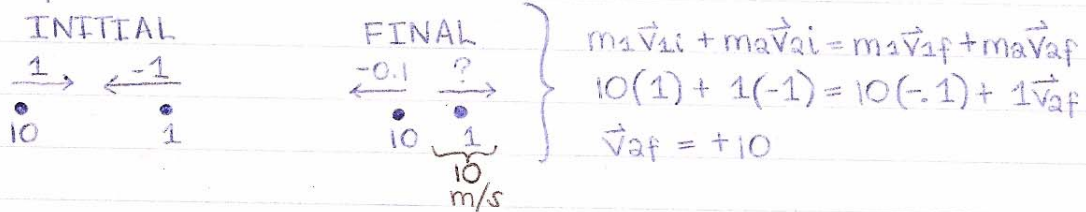 INITIAL
1 -1
10 1
FINAL
-0.1 ?
10 1
10
m/s
m₁v⃗₁i + m₂v⃗₂i = m₁v⃗₁f + m₂v⃗₂f
10(1) + 1(-1) = 10(-.1) + 1v⃗₂f
v⃗₂f = +10